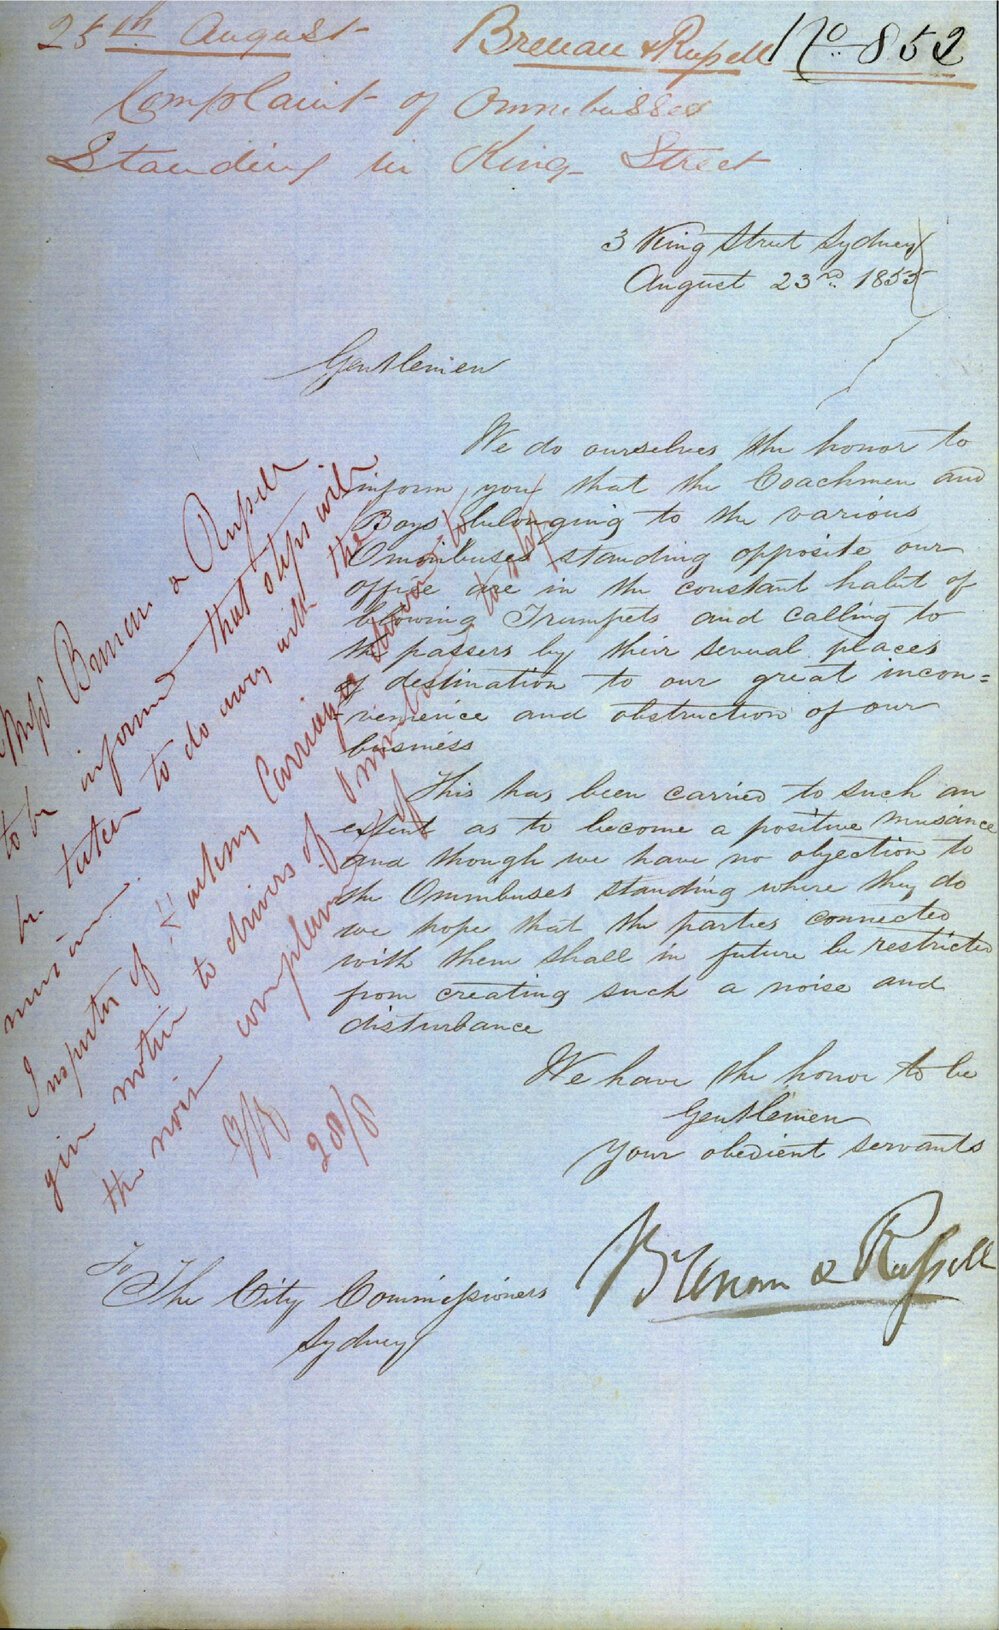 25th August Brenan & Russell No 852
Complaint of Omnibusses
Standing in King Street
3 King Street Sydney
August 23rd 1855
Gentlemen
We do ourselves the honor to
inform you that the Coachmen and
Boys belonging to the various
Omnibuses standing opposite our
office are in the constant habit of
blowing Trumpets and calling to
the passers by their several places
of destination to our great incon=
=venience and obstruction of our
business
This has been carried to such an
extent as to become a positive nuisance
and though we have no objection to
the Omnibuses standing where they do
we hope that the parties connected
with them shall in future be restricted
from creating such a noise and
disturbance
We have the honor to be
Gentlemen
Your obedient servants
Brenan & Russell
To
The City Commissioners
Sydney
Messrs Brenan & Russell
to be informed that steps will
be taken to do away with the
nuisance.
Inspector of Hackney Carriages to
give notice to drivers of Omnibuses
the noise complained of
28/8